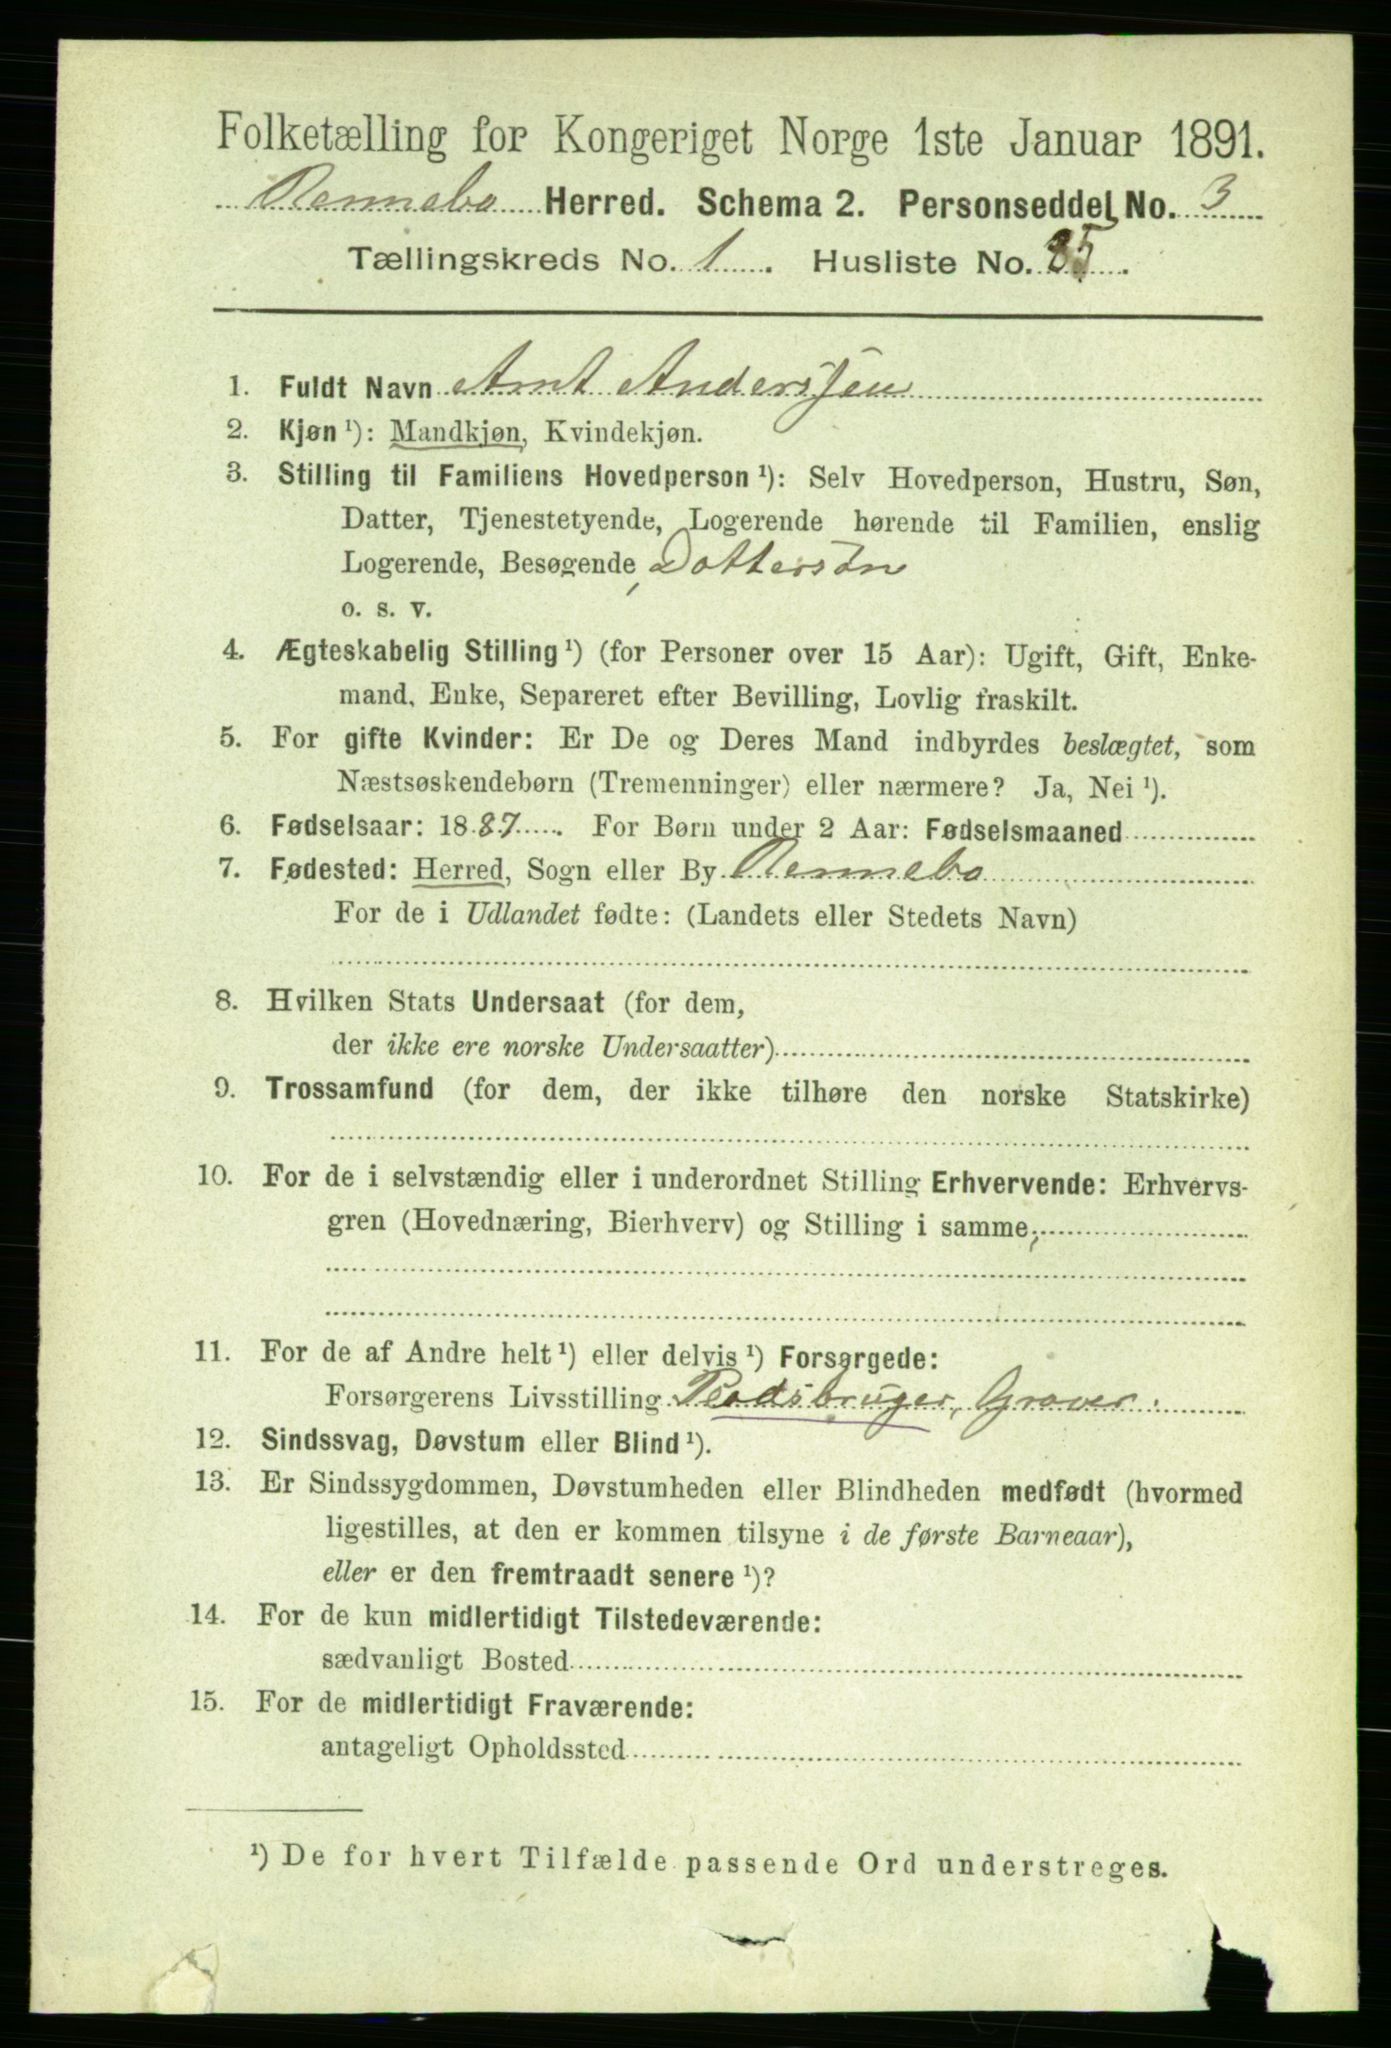 Folketælling for Kongeriget Norge 1ste Januar 1891.
Rennebo Herred. Schema 2. Personseddel No. 3
Tællingskreds No. 1. Husliste No. 85.
1. Fuldt Navn Arnt Anderssen
2. Kjøn ¹): Mandkjøn, Kvindekjøn.
3. Stilling til Familiens Hovedperson ¹): Selv Hovedperson, Hustru, Søn,
Datter, Tjenestetyende, Logerende hørende til Familien, enslig
Logerende, Besøgende, Dattersøn
o. s. v.
4. Ægteskabelig Stilling ¹) (for Personer over 15 Aar): Ugift, Gift, Enke-
mand, Enke, Separeret efter Bevilling, Lovlig fraskilt.
5. For gifte Kvinder: Er De og Deres Mand indbyrdes beslægtet, som
Næstsøskendebørn (Tremenninger) eller nærmere? Ja, Nei ¹).
6. Fødselsaar: 1887. For Børn under 2 Aar: Fødselsmaaned
7. Fødested: Herred, Sogn eller By Rennebo
For de i Udlandet fødte: (Landets eller Stedets Navn)
8. Hvilken Stats Undersaat (for dem,
der ikke ere norske Undersaatter)
9. Trossamfund (for dem, der ikke tilhøre den norske Statskirke)
10. For de i selvstændig eller i underordnet Stilling Erhvervende: Erhvervs-
gren (Hovednæring, Bierhverv) og Stilling i samme;
11. For de af Andre helt ¹) eller delvis ¹) Forsørgede:
Forsørgerens Livsstilling Pladsbruger, Graver.
12. Sindssvag, Døvstum eller Blind ¹).
13. Er Sindssygdommen, Døvstumheden eller Blindheden medfødt (hvormed
ligestilles, at den er kommen tilsyne i de første Barneaar),
eller er den fremtraadt senere ¹)?
14. For de kun midlertidigt Tilstedeværende:
sædvanligt Bosted
15. For de midlertidigt Fraværende:
antageligt Opholdssted
¹) De for hvert Tilfælde passende Ord understreges.